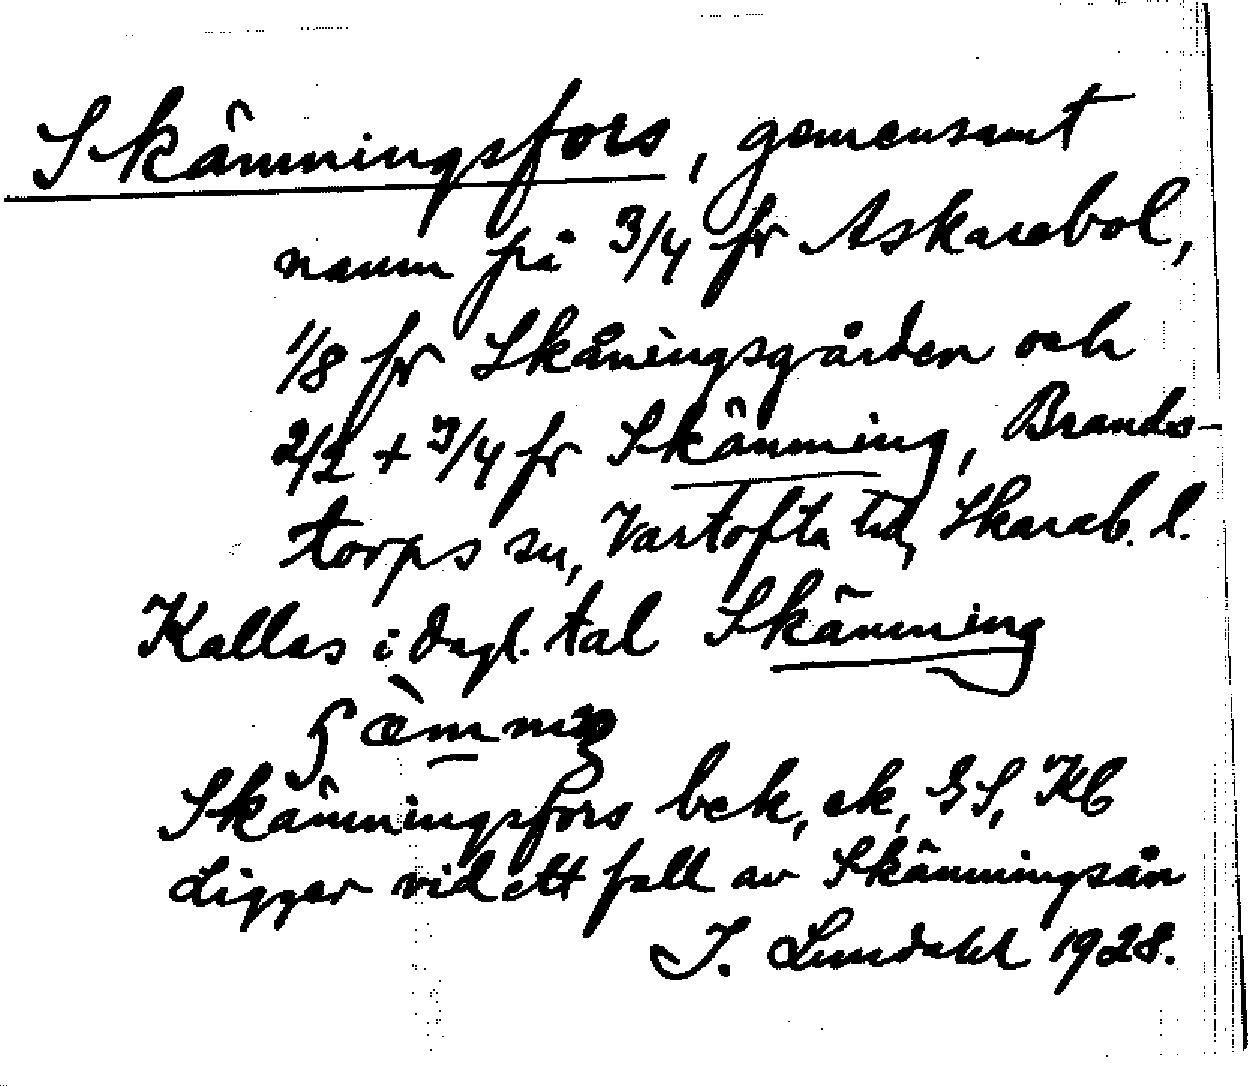 Skämningsfors, gemensamt
namn på 3/4 fr Askarebol,
1/8 fr Skåningsgården och
2/2 + 3/4 fr Skämning, Brands-
torps sn, Vartofta hd, Skarab. l.
Kallas i dagl. tal Skämning
Skämningsfors bek, ek, GS, Kb
Ligger vid ett fall av Skämningsån
I. Lundahl 1928.